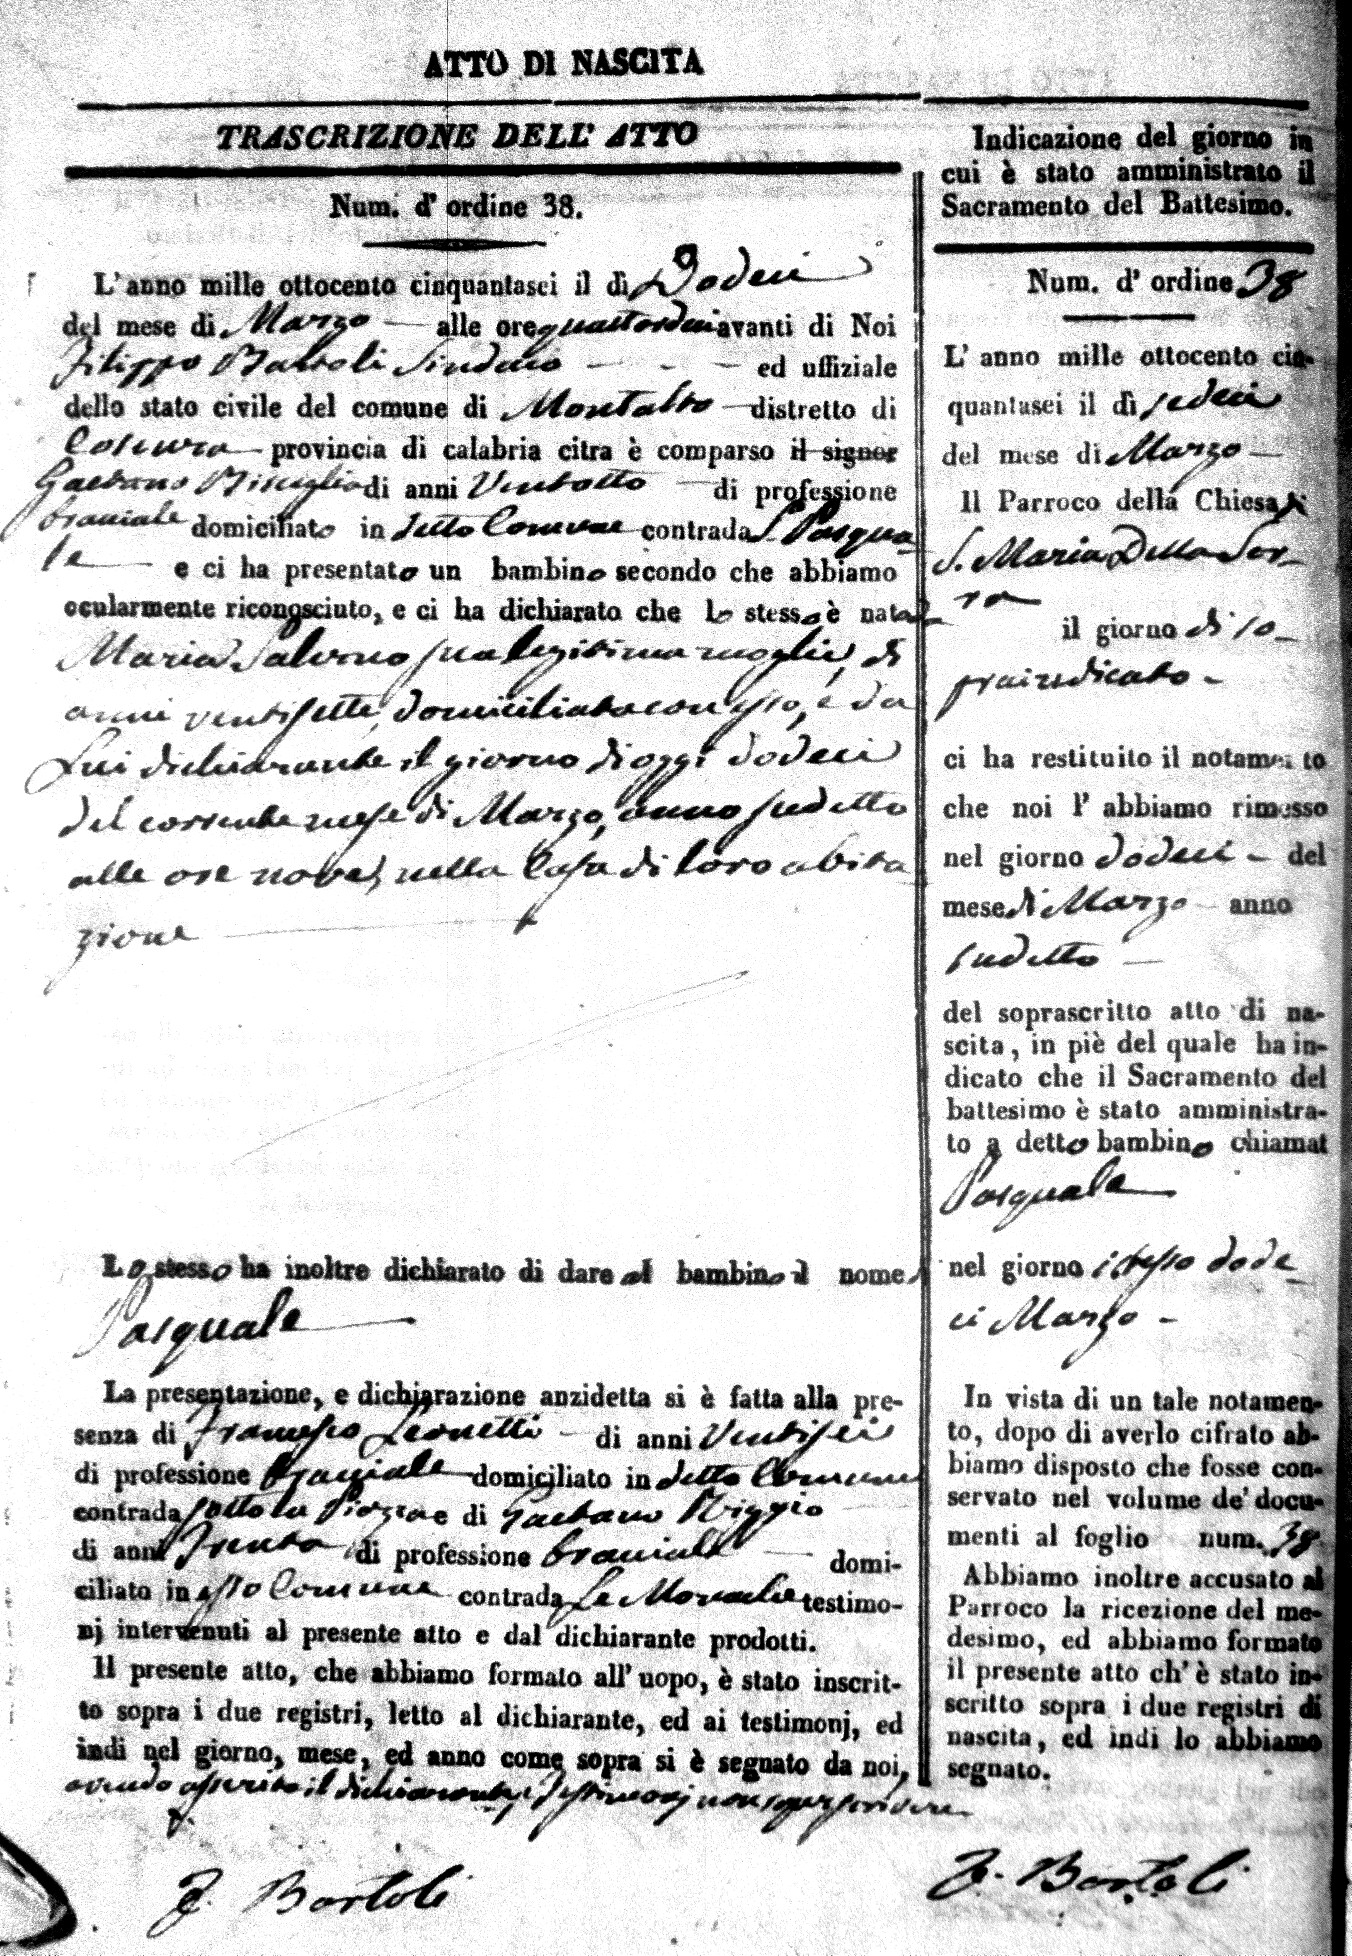 ATTO DI NASCITA
TRASCRIZIONE DELL' ATTO
Num. d' ordine 38.
L' anno mille ottocento cinquantasei il dì Dodeci
del mese di Marzo — alle ore quattordici avanti di Noi
Filippo Bartoli Sindaco — ed uffiziale
dello stato civile del comune di Montalto — distretto di
Cosenza — provincia di calabria citra è comparso il signor
Gaetano di anni Ventotto — di professione
braciale domiciliato in detto Comune contrada S. Pasqua-
le — e ci ha presentato un bambino secondo che abbiamo
ocularmente riconosciuto, e ci ha dichiarato che lo stesso è nato da
Maria Salerno sua legitima moglie, di
anni ventisette, domiciliata con esso, e da
Lui dichiarante il giorno di oggi dodeci
del corrente mese di Marzo, anno sudetto
alle ore nove, nella Casa di loro abita
zione —
Lo stesso ha inoltre dichiarato di dare al bambino il nome di
Pasquale —
La presentazione, e dichiarazione anzidetta si è fatta alla pre-
senza di Francesco Leonetti — di anni Ventisei
di professione braciale domiciliato in detto Comune
contrada sotto la Piazza e di Gaetano Riggio
di anni Trenta di professione braciale — domi-
ciliato in esso Comune contrada Le Monache testimo-
nj intervenuti al presente atto e dal dichiarante prodotti.
Il presente atto, che abbiamo formato all' uopo, è stato inscrit-
to sopra i due registri, letto al dichiarante, ed ai testimonj, ed
indi nel giorno, mese, ed anno come sopra si è segnato da noi,
avendo asserito il dichiarante, e testimonj non saper scrivere
F. Bartoli
Indicazione del giorno in
cui è stato amministrato il
Sacramento del Battesimo.
Num. d' ordine 38
L' anno mille ottocento cin-
quantasei il dì sedeci
del mese di Marzo —
Il Parroco della Chiesa di
S. Maria Della Ser-
ra
il giorno di so-
praindicato -
ci ha restituito il notamento
che noi l' abbiamo rimesso
nel giorno dodeci - del
mese di Marzo anno
sudetto —
del soprascritto atto di na-
scita, in piè del quale ha in-
dicato che il Sacramento del
battesimo è stato amministra-
to a detto bambino chiamat
Pasquale —
nel giorno istesso dode-
ci Marzo -
In vista di un tale notamen-
to, dopo di averlo cifrato ab-
biamo disposto che fosse con-
servato nel volume de' docu-
menti al foglio num. 38
Abbiamo inoltre accusato al
Parroco la ricezione del me-
desimo, ed abbiamo formato
il presente atto ch' è stato in-
scritto sopra i due registri di
nascita, ed indi lo abbiamo
segnato.
F. Bartoli